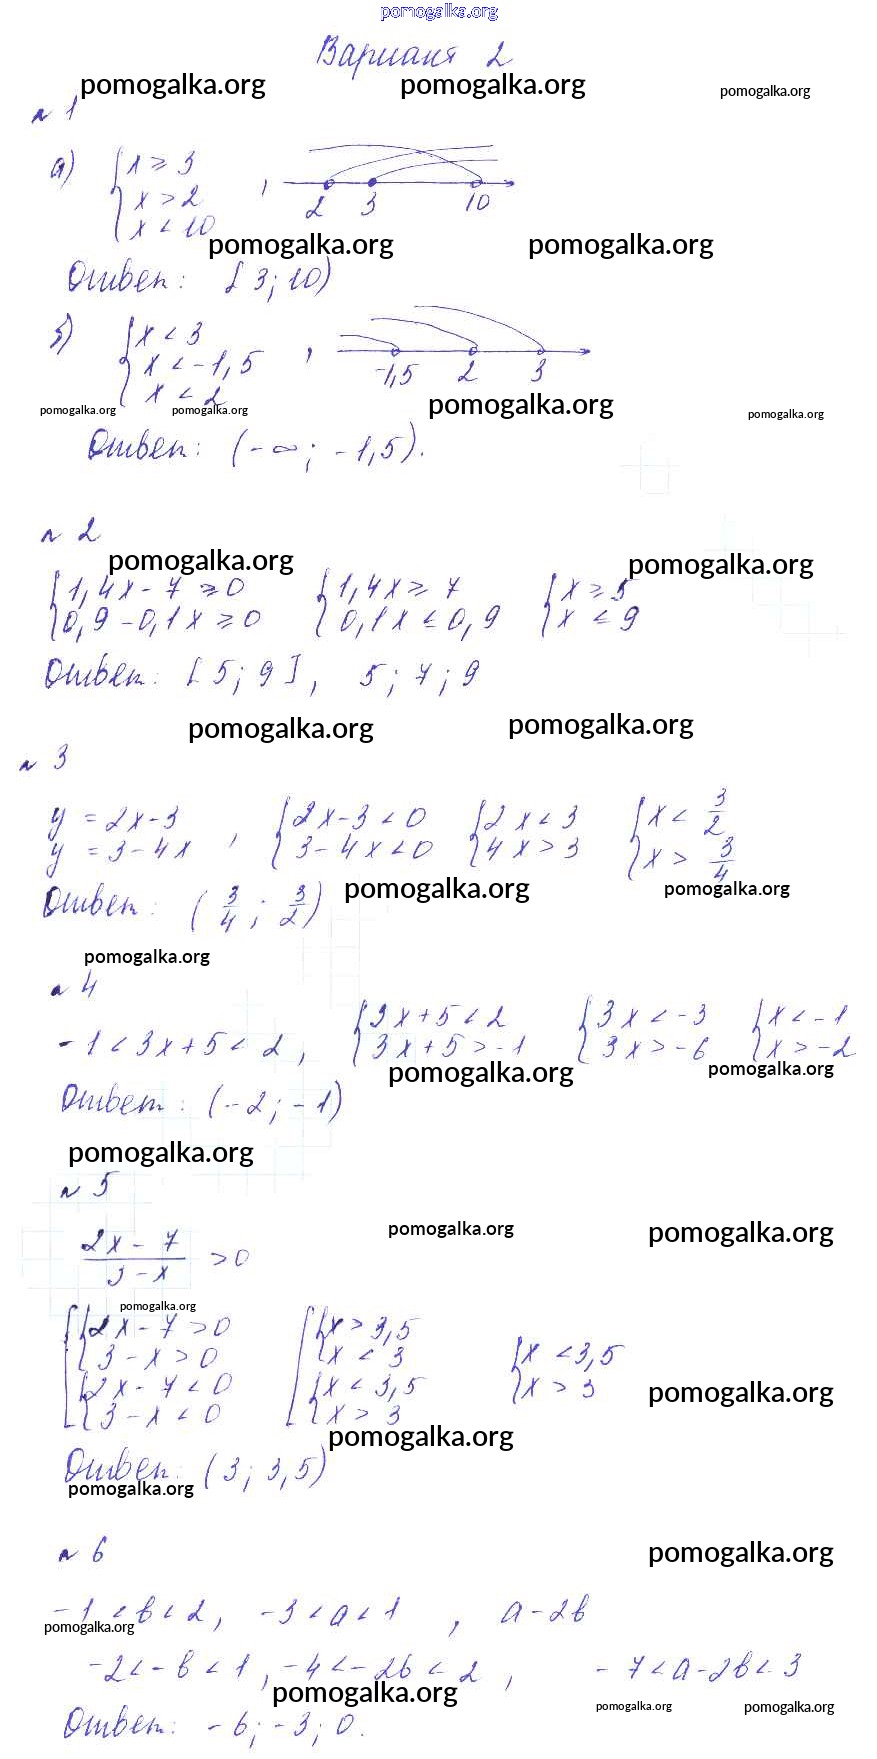 pomogalka.org
Вариант 2
pomogalka.org pomogalka.org pomogalka.org
№ 1
а) { x ≥ 3
x > 2
x < 10 , 2 3 10
pomogalka.org pomogalka.org
Ответ: [3; 10)
б) { x < 3
x < -1,5
x < 2 , -1,5 2 3
pomogalka.org pomogalka.org pomogalka.org pomogalka.org
Ответ: (-∞; -1,5).
№ 2
pomogalka.org pomogalka.org
{ 1,4x - 7 ≥ 0 { 1,4x ≥ 7 { x ≥ 5
0,9 - 0,1x ≥ 0 0,1x ≤ 0,9 x ≤ 9
Ответ: [5; 9], 5; 7; 9
pomogalka.org pomogalka.org
№ 3
y = 2x - 3 { 2x - 3 < 0 { 2x < 3 { x < 3/2
y = 3 - 4x , 3 - 4x < 0 4x > 3 x > 3/4
pomogalka.org pomogalka.org
Ответ: (3/4; 3/2)
pomogalka.org
№ 4
-1 < 3x + 5 < 2, { 3x + 5 < 2 { 3x < -3 { x < -1
3x + 5 > -1 3x > -6 x > -2
pomogalka.org pomogalka.org
Ответ: (-2; -1)
pomogalka.org
№ 5
pomogalka.org pomogalka.org
2x - 7 / 3 - x > 0
pomogalka.org
[ { 2x - 7 > 0 [ { x > 3,5 { x < 3,5
3 - x > 0 x < 3 x > 3
{ 2x - 7 < 0 { x < 3,5
3 - x < 0 x > 3
pomogalka.org
pomogalka.org
Ответ: (3; 3,5)
pomogalka.org
№ 6
pomogalka.org
-1 < b < 2, -3 < a < 1 , a - 2b
pomogalka.org
-2 < -b < 1, -4 < -2b < 2 , -7 < a - 2b < 3
pomogalka.org pomogalka.org pomogalka.org
Ответ: -6; -3; 0.